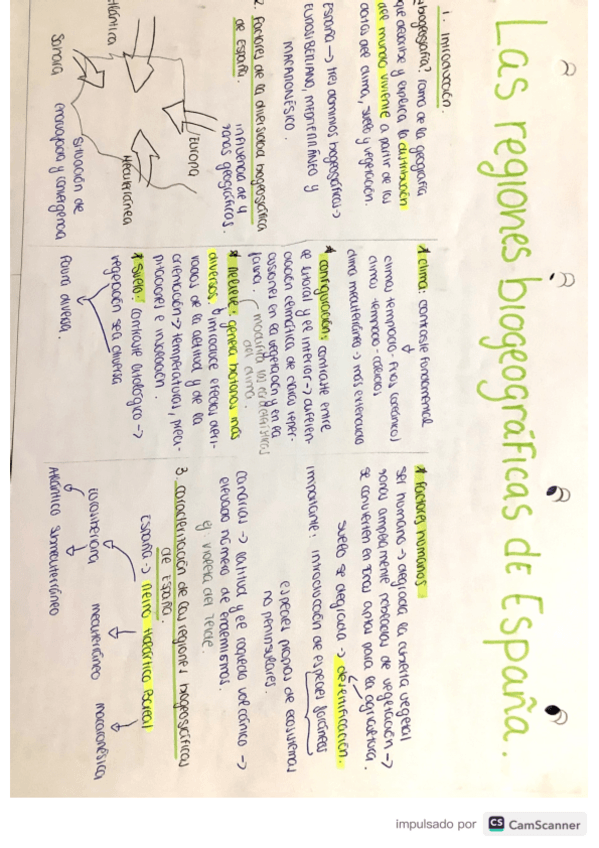 Las regiones biogeográficas de España.
1. Introducción.
¿biogeografía? rama de la geografía
que describe y explica la distribución
del mundo viviente a partir de los
datos del clima, suelo y vegetación.
España → tres dominios biogeográficos →
EUROSIBERIANO, MEDITERRÁNEO y
MACARONÉSICO.
2. Factores de la diversidad biogeográfica
de España.
influencia de 4
zonas geográficas.
Atlántica
Europa
Mediterránea
Sahara
situación de
encrucijada y convergencia
* clima: contraste fundamental
climas templado-fríos oceánicos
climas templado-cálidos
clima mediterráneo → más extensión
* configuración: contraste entre
el litoral y el interior → diferen-
ciación climática de claras reper-
cusiones en la vegetación y en la
fauna.
modifica las características
del clima.
* relieve: genera biotopos más
diversos, introduce efectos deri-
vados de la altitud y de la
orientación → temperaturas, preci-
pitaciones e insolación.
* suelo: contraste litológico →
vegetación sea diversa
fauna diversa.
* Factores humanos
ser humano → degrada la cubierta vegetal
zonas ampliamente rebosadas de vegetación →
se convierten en zonas aptas para la agricultura.
suelo se degrada → desertificación.
importante: introducción de especies foráneas
especies propias de ecosistemas
no peninsulares.
Canarias → latitud y el roquedo volcánico →
elevado número de endemismos.
ej violeta del Teide.
3. caracterización de las regiones biogeográficas
de España.
España → Reino Holártico Boreal
eurosiberiana
mediterráneo
macaronésica
Atlántico
Submediterráneo
impulsado por CS CamScanner